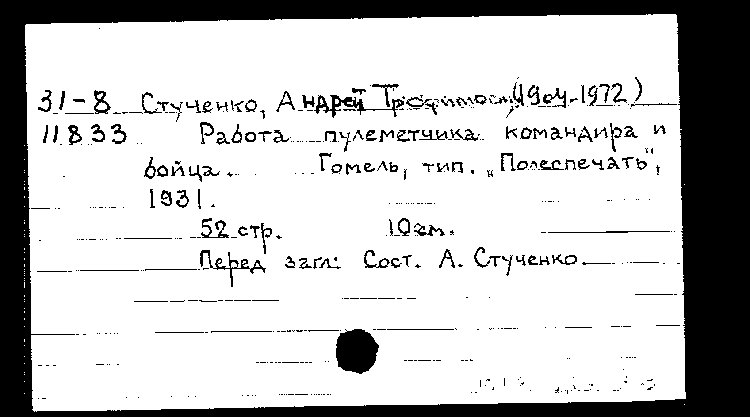 31-8 Стученко, Андрей Трофимович (1904-1972)
11833 Работа пулеметчика командира и
бойца. Гомель, тип. „Полеспечать",
1931.
52 стр. 10 см.
Перед загл: Сост. А. Стученко.